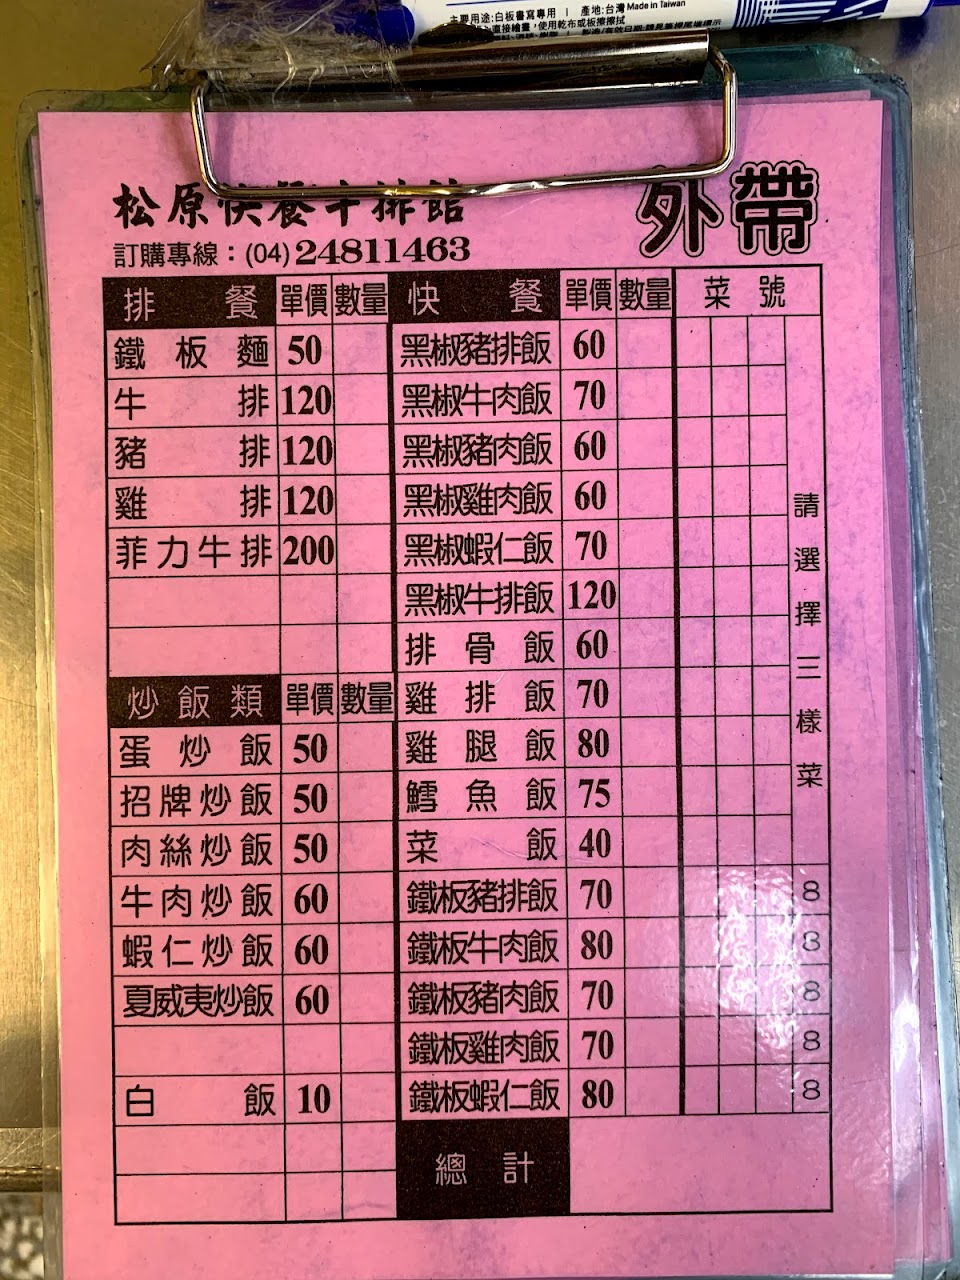 主要用途:白板書寫專用 | 產地:台灣 Made in Taiwan
直接繪畫，使用乾布或板擦擦拭
松原快餐牛排館
外帶
訂購專線：(04)24811463
排餐 單價 數量 快餐 單價 數量 菜號
鐵板麵 50 黑椒豬排飯 60
牛排 120 黑椒牛肉飯 70
豬排 120 黑椒豬肉飯 60
雞排 120 黑椒雞肉飯 60
菲力牛排 200 黑椒蝦仁飯 70
黑椒牛排飯 120
排骨飯 60
炒飯類 單價 數量 雞排飯 70
蛋炒飯 50 雞腿飯 80
招牌炒飯 50 鱈魚飯 75
肉絲炒飯 50 菜飯 40
請選擇三樣菜
牛肉炒飯 60 鐵板豬排飯 70 8
蝦仁炒飯 60 鐵板牛肉飯 80 8
夏威夷炒飯 60 鐵板豬肉飯 70 8
鐵板雞肉飯 70 8
白飯 10 鐵板蝦仁飯 80 8
總計